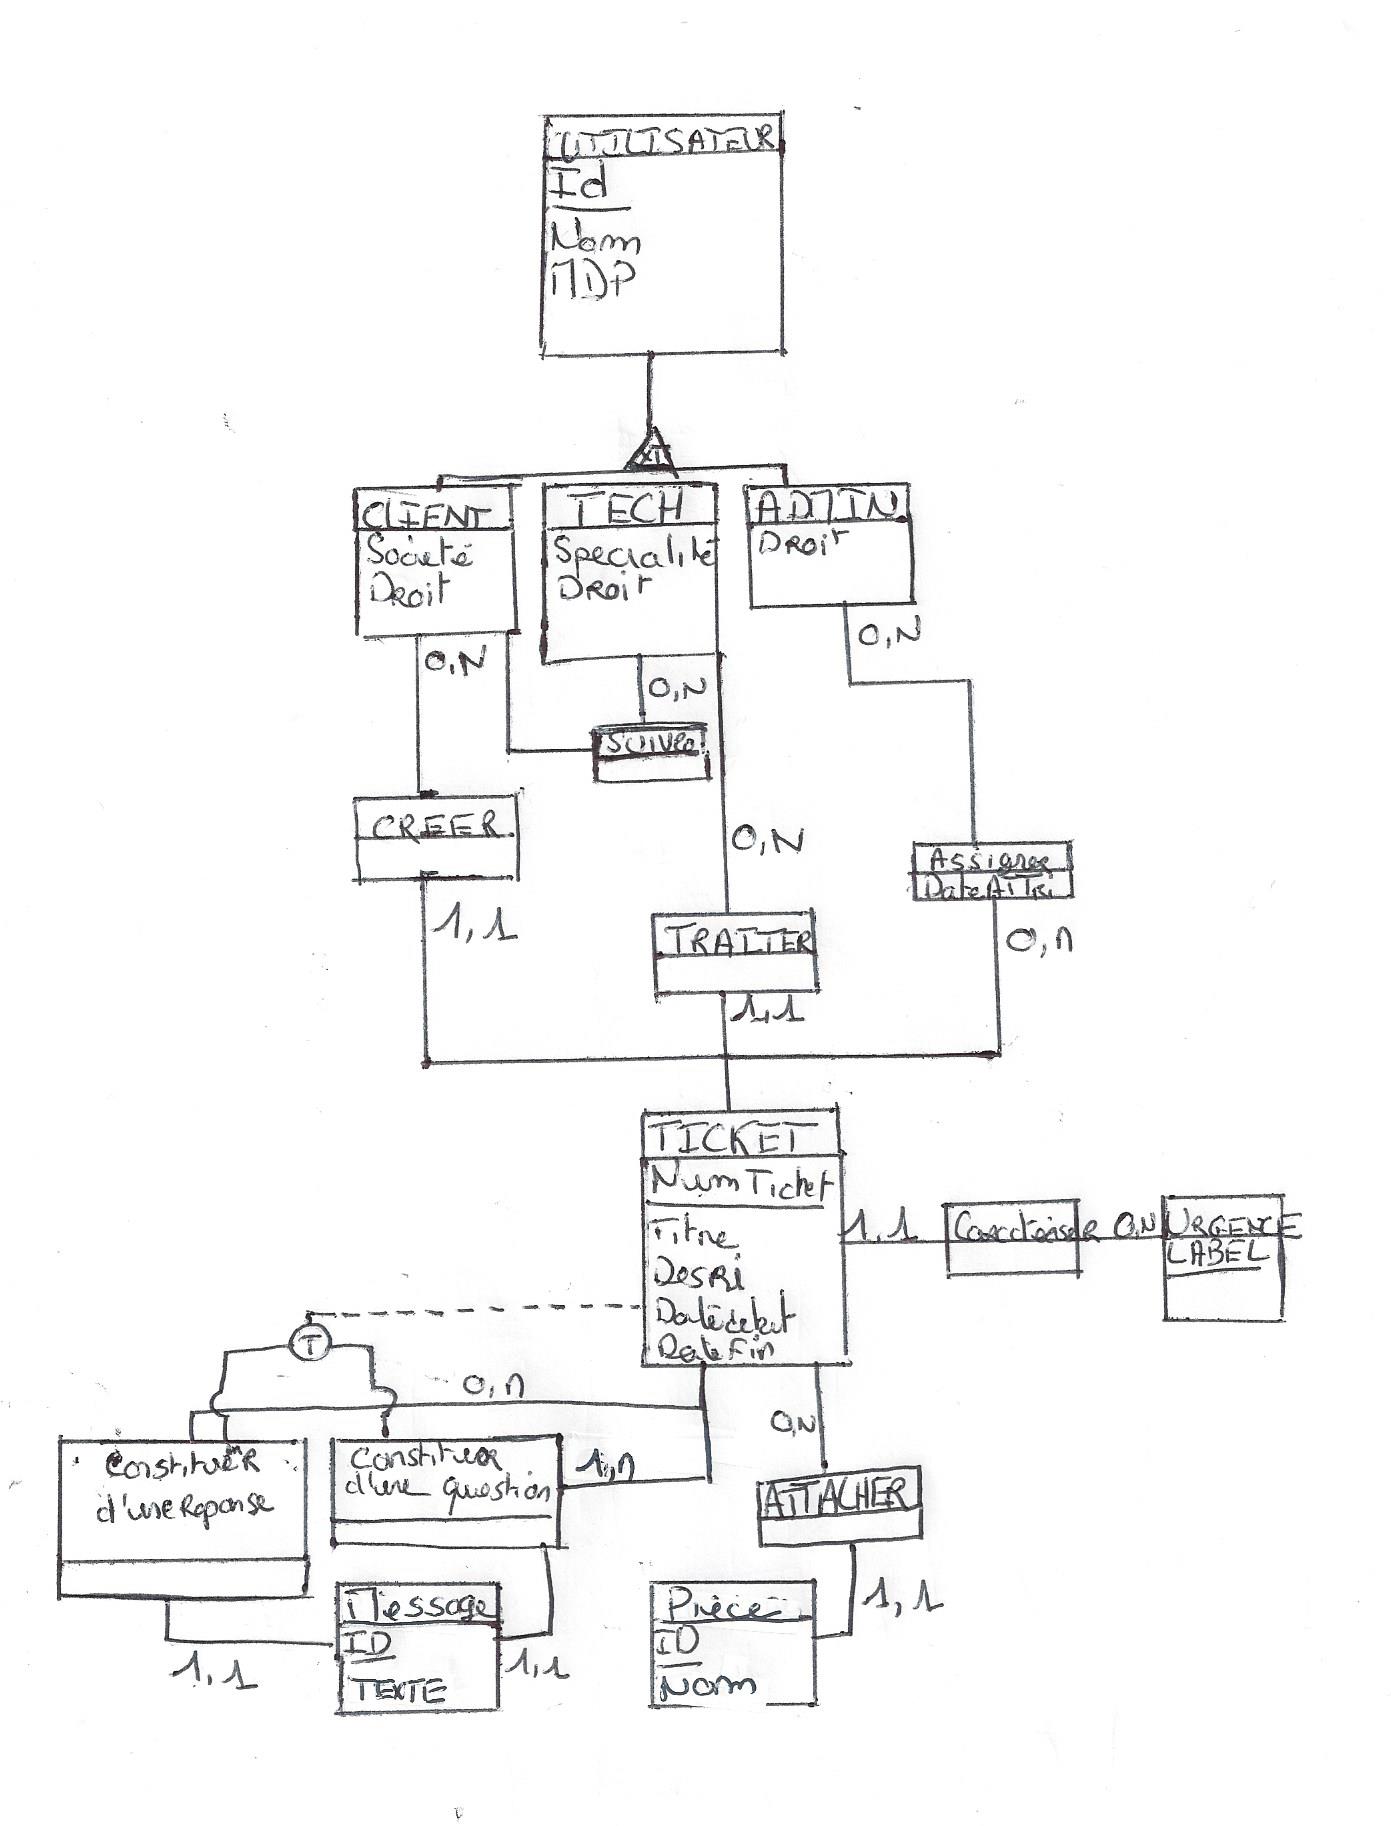 UTILISATEUR
Id
Nom
MDP
XT
CLIENT
Societé
Droit
TECH
Specialité
Droit
ADMIN
Droit
0,N
0,N
0,N
SUIVRE
CREER
0,N
Assigner
1,1
TRAITER
0,n
1,1
TICKET
NumTicket
Titre
DesRi
Datedebut
DateFin
1,1
0,N
URGENCE
LABEL
T
0,n
0,N
Constituer
d'une Reponse
Constituer
d'une question
1,n
ATTACHER
1,1
Message
ID
TEXTE
1,1
1,1
Piece
ID
Nom